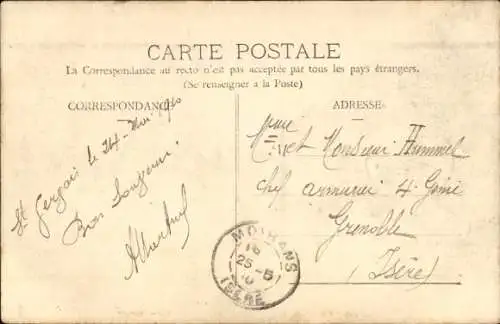 CARTE POSTALE
La Correspondance au recto n'est pas acceptée par tous les pays étrangers.
(Se renseigner à la Poste)
CORRESPONDANCE
ADRESSE
St Gergois le 24 Mai 1910
Bon Souvenir
Mme et Monsieur Hummel
chef armurier 4e Génie
Grenoble
(Isère)
MOIRANS
16
25-5
10
ISERE